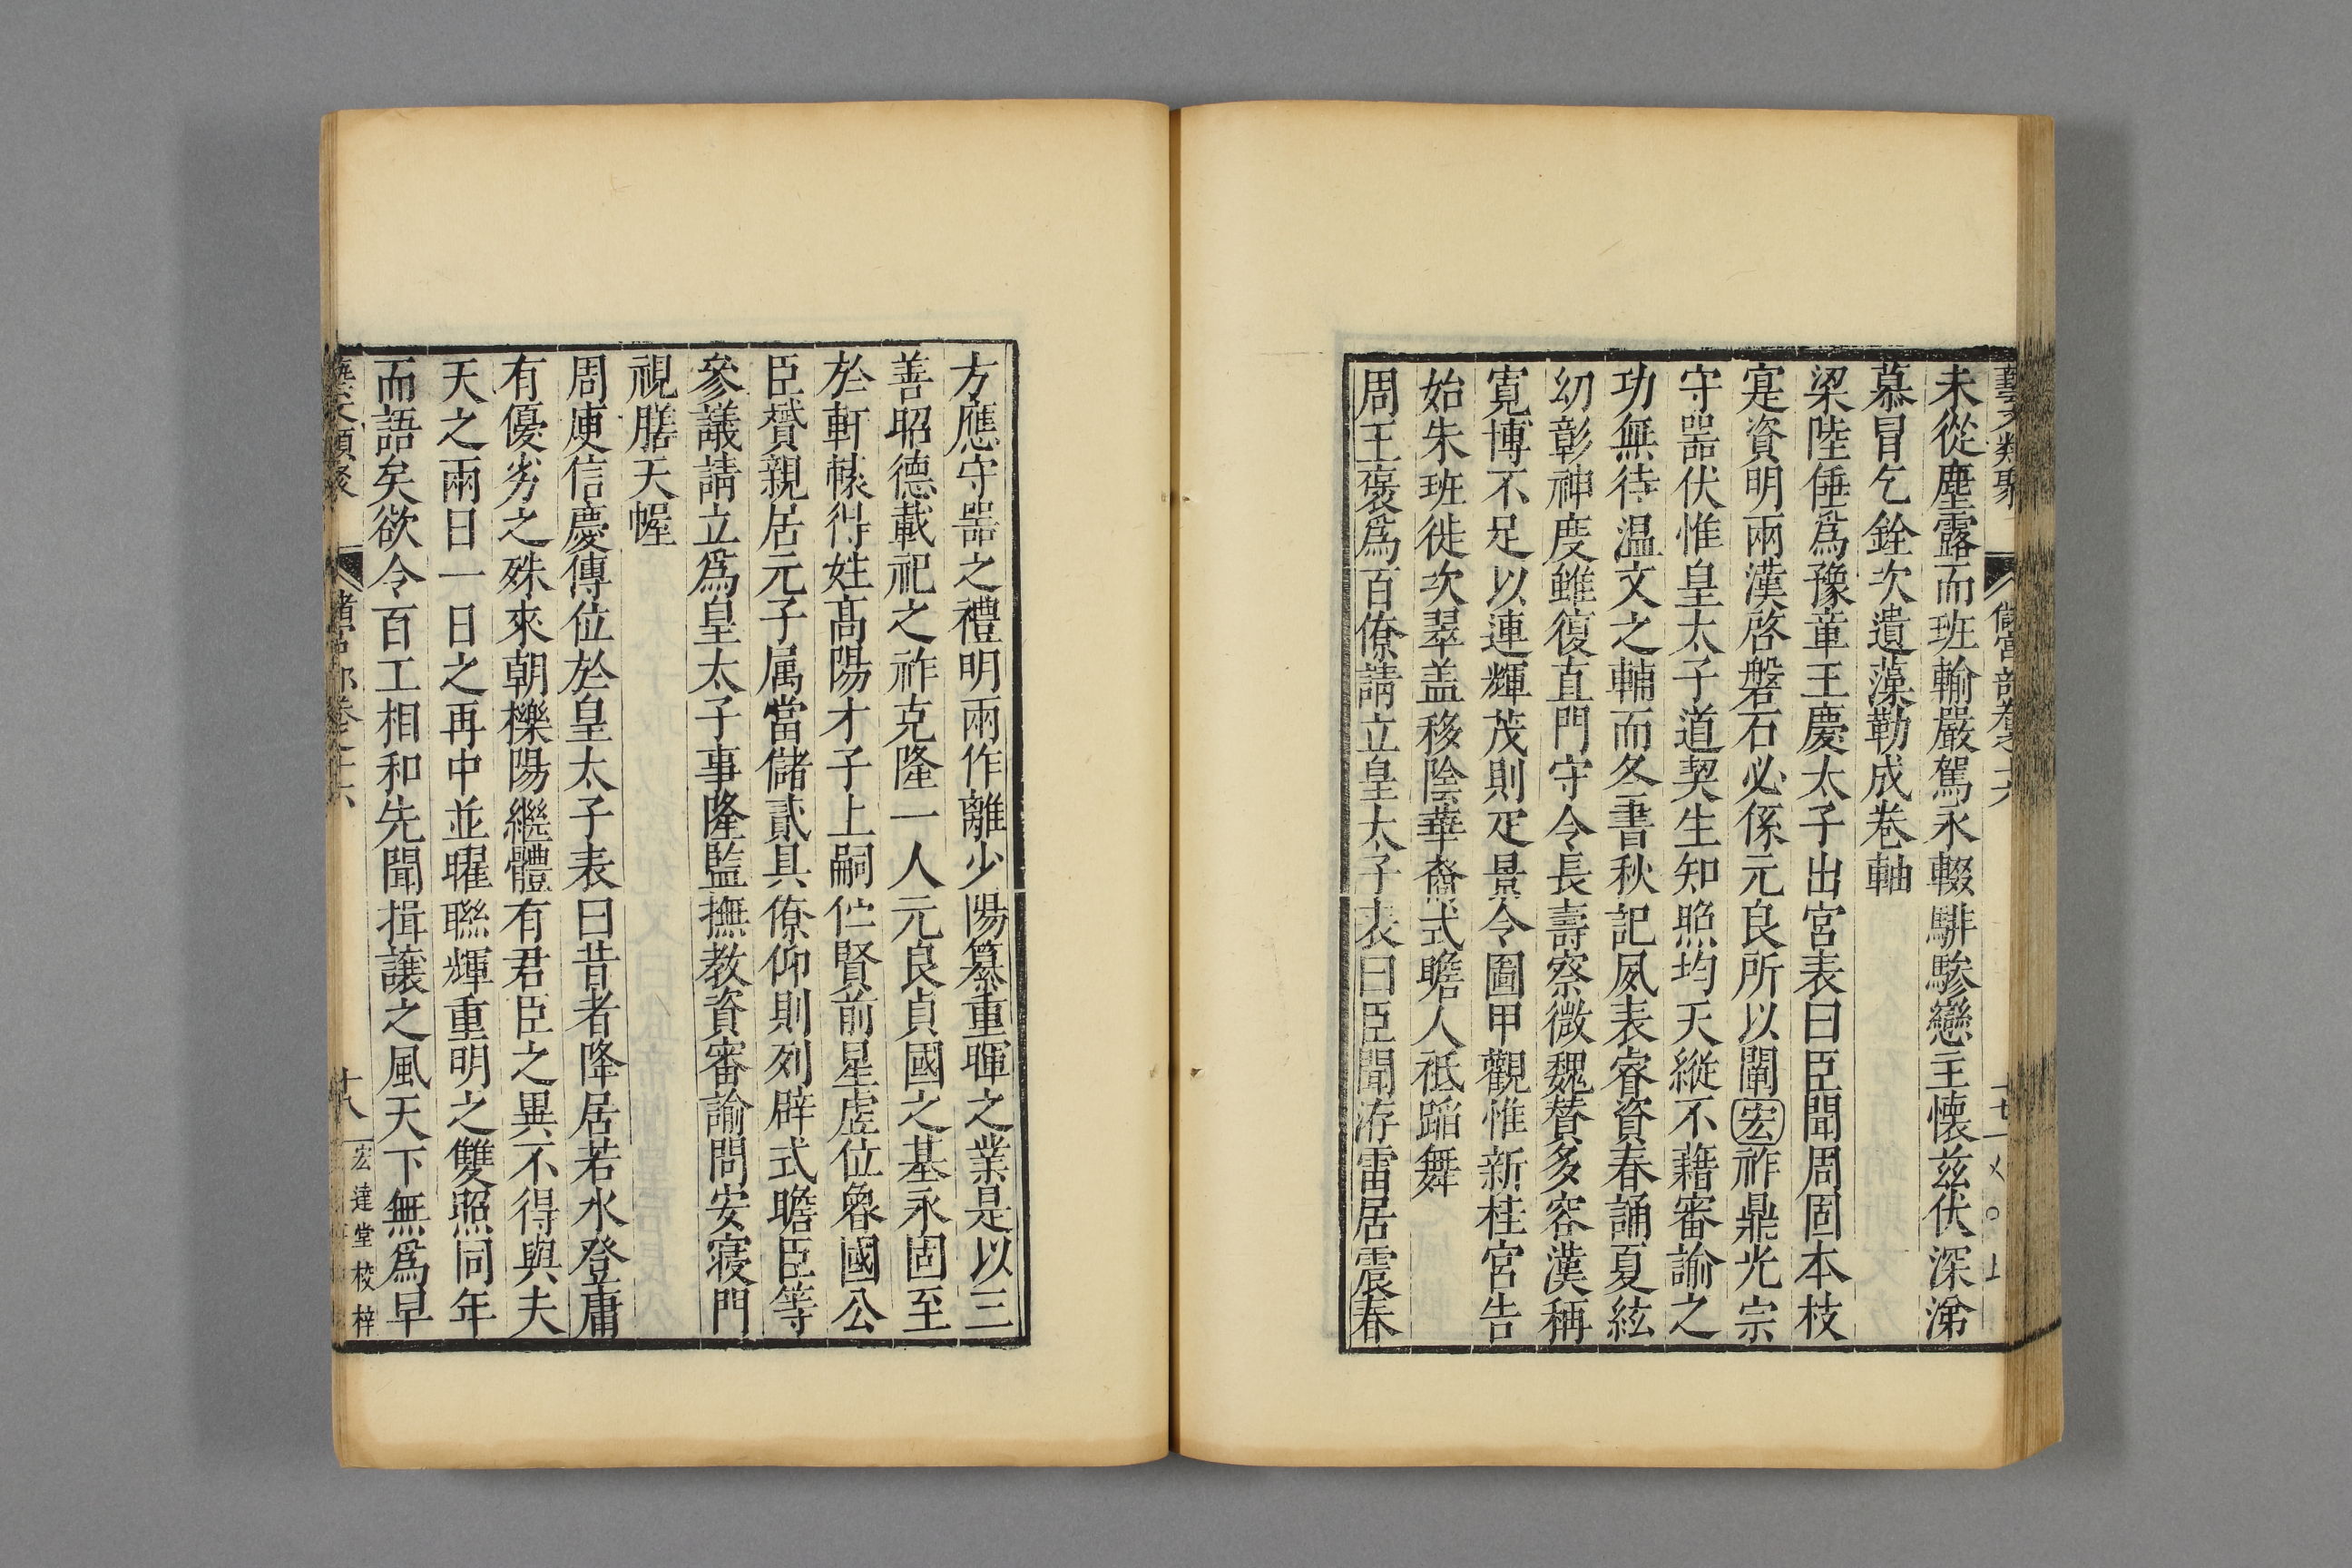 藝文類聚 儲宮部卷之十六
未從塵露而班輸嚴駕永輟騑驂戀主懷兹伏深涕
慕冒乞銓次遺藻勒成卷軸
梁陸倕爲豫章王慶太子出宮表曰臣聞周固本枝
寔資明兩漢啓磐石必係元良所以闡宏祚鼎光宗
守噐伏惟皇太子道契生知照均天縱不藉審諭之
功無待温文之輔而冬書秋記夙表睿資春誦夏絃
幼彰神度雖復直門守令長壽察微魏賛多容漢稱
寛博不足以連輝茂則疋景令圖甲觀惟新桂宮告
始朱班徙次翠盖移陰華裔式瞻人祗蹈舞
周王褒爲百僚請立皇太子表曰臣聞洊雷居震春
方應守噐之禮明兩作離少陽纂重暉之業是以三
善昭德載祀之祚克隆一人元良貞國之基永固至
於軒轅得姓髙陽才子上嗣伫賢前星虛位魯國公
臣贇親居元子属當儲貳具僚仰則列辟式瞻臣等
參議請立爲皇太子事隆監撫教資審諭問安寢門
視膳天幄
周庾信慶傳位於皇太子表曰昔者降居若水登庸
有優劣之殊來朝櫟陽繼體有君臣之異不得與夫
天之兩日一日之再中並曜聯輝重明之雙照同年
而語矣欲令百工相和先聞揖讓之風天下無爲早
藝文類聚 儲宮部卷之十六 十八 宏達堂校梓